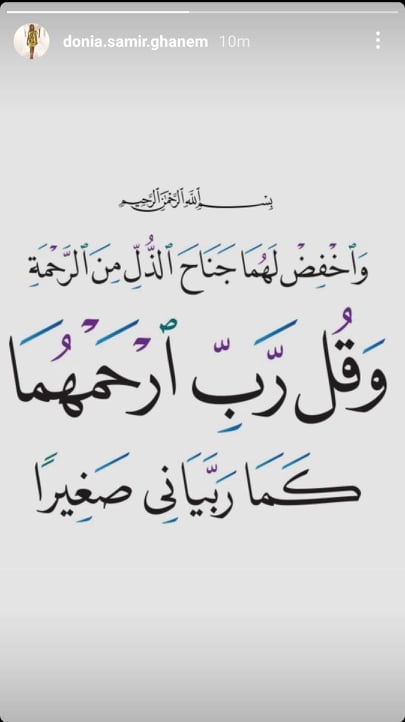 donia.samir.ghanem 10m
بِسْمِ اللَّهِ الرَّحْمَٰنِ الرَّحِيمِ
وَٱخْفِضْ لَهُمَا جَنَاحَ ٱلذُّلِّ مِنَ ٱلرَّحْمَةِ
وَقُل رَّبِّ ٱرْحَمْهُمَا
كَمَا رَبَّيَانِى صَغِيرًا